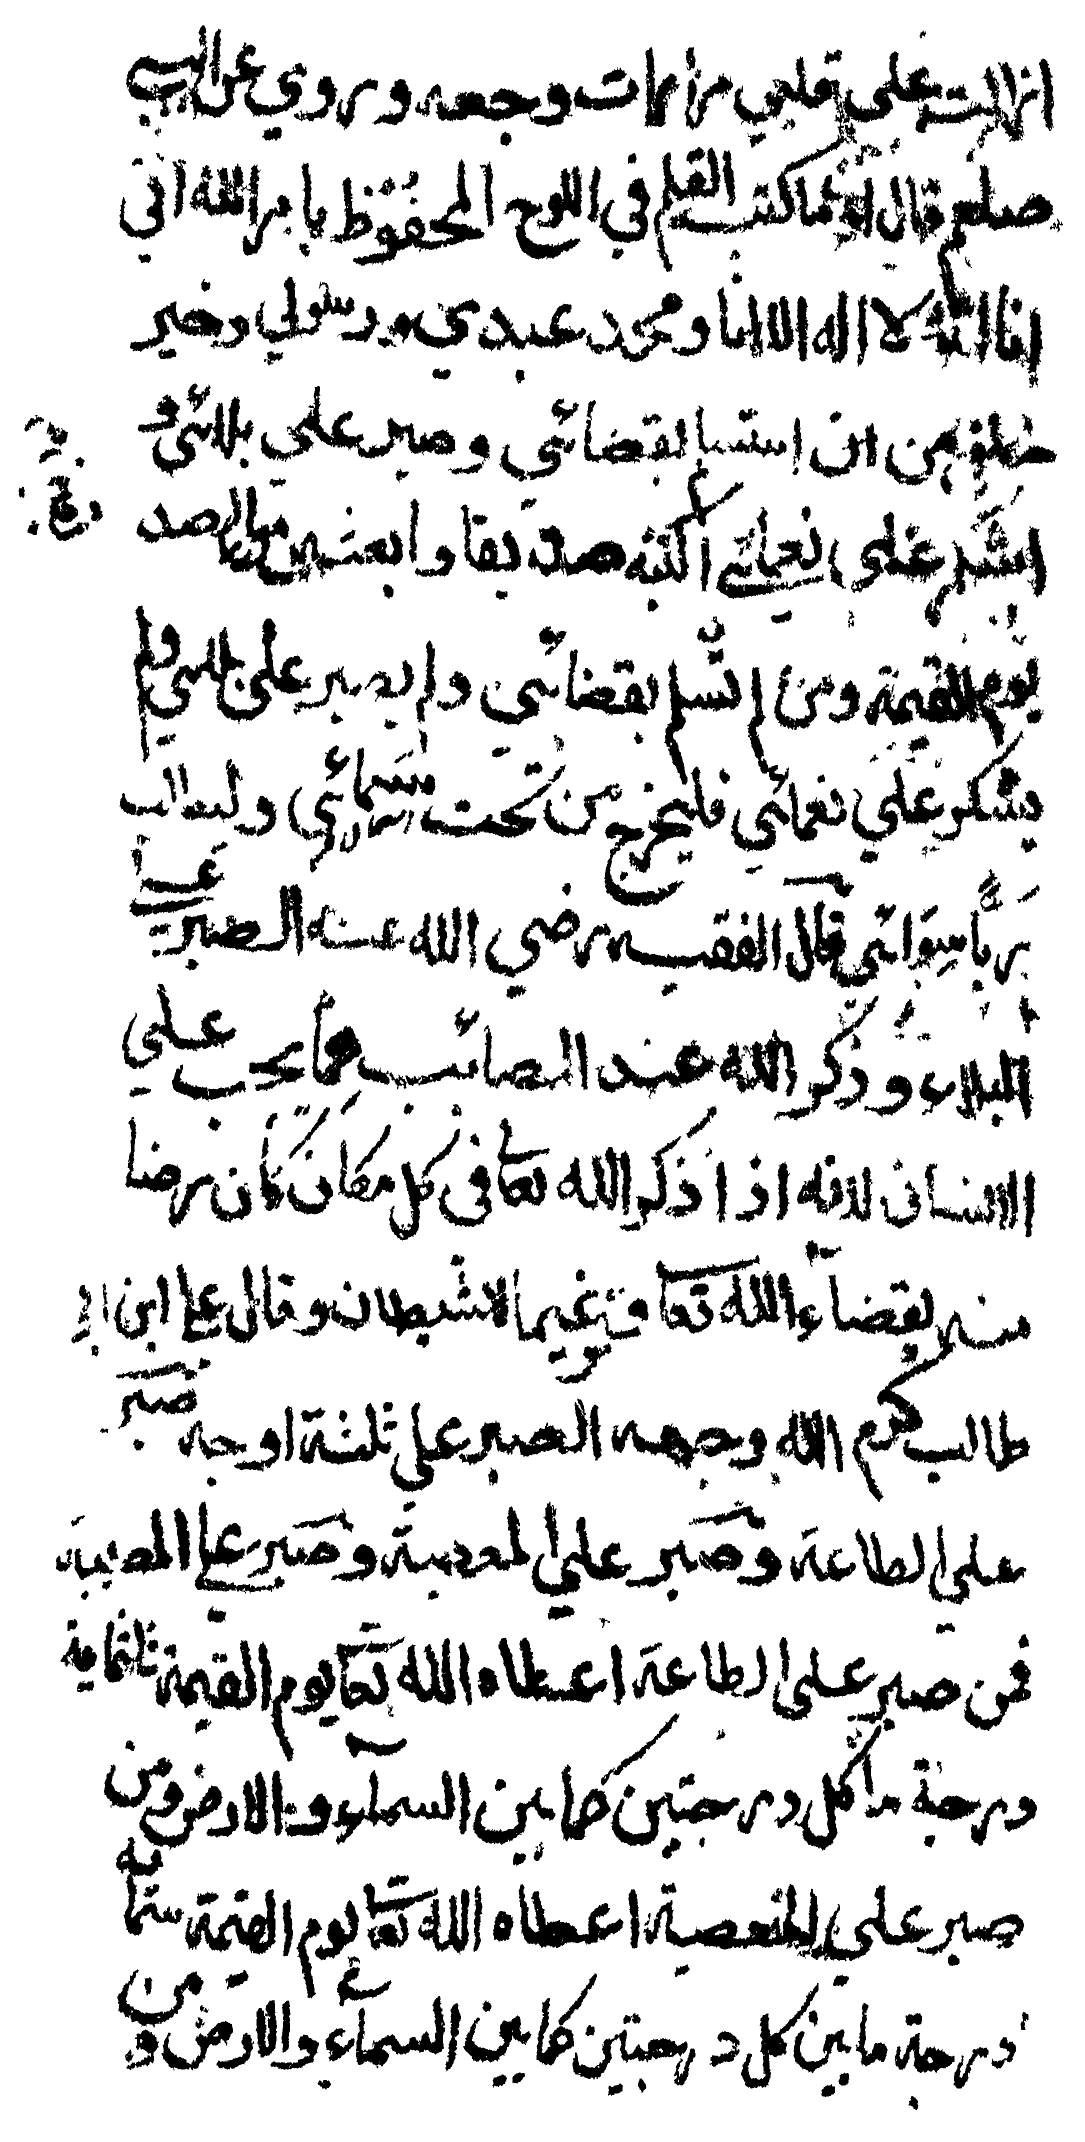 انزلت على قلبي مرارات وجعه وروي عن النبي
صلعم قال اول ما كتب القلم في اللوح المحفوظ بامر الله اني
انا الله لا اله الا انا ومحمد عبدي ورسولي وخير
خلقي من ان استسلم لقضائي وصبر علي بلائي و
يشكر علي نعمائي اكتبه صديقا وابعثه مع الصد
يقين
يوم القيمة ومن لم تسلم بقضائي ولم يصبر على بلائي ولم
يشكر علي نعمائي فليخرج من تحت سمائي وليطلب
ربا سوائي قال الفقيه رضي الله عنه الصبر علي
البلاء وذكر الله عند المصائب مما يجب علي
الانسان لانه اذا ذكر الله تعا في كل مكان كان رضا
منه بقضاء الله تعا وترغيما لاشيطان وقال علي ابن ابي
طالب كرم الله وجهه الصبر على ثلثة اوجه صبر
علي الطاعة وصبر علي المعصية وصبر علي المصيبة
فمن صبر على الطاعة اعطاه الله تعا يوم القيمة ثلثماية
درجة ما كل درجتين كما بين السماء والارض ومن
صبر علي المعصية اعطاه الله تعا يوم القيمة ستماية
درجة ما بين كل درجتين كما بين السماء والارض ومن